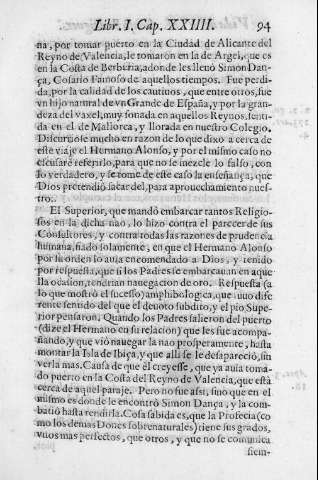 Libr. I. Cap. XXIIII. 94
na, por tomar puerto en la Ciudad de Alicante del
Reyno de Valencia, le tomaron en la de Argel, que es
en la Costa de Berberia, adonde les lleuò Simon Dan-
ça, Cosario Famoso de aquellos tiempos. Fue perdi-
da, por la calidad de los cautiuos, que entre otros, fue
vn hijo natural de vn Grande de España, y por la gran-
deza del vaxel, muy sonada en aquellos Reynos, senti-
da en el de Mallorca, y llorada en nuestro Colegio.
Discurriòse mucho en razon de lo que dixo a cerca de
este viaje el Hermano Alonso, y por el mismo caso no
escusarè referirlo, para que no se mezcle lo falso, con
lo verdadero, y se tome de este caso la enseñança, que
Dios pretendiò sacar del, para aprouechamiento nues-
tro.
El Superior, que mandò embarcar tantos Religio-
sos en la dicha nao, lo hizo contra el parecer de sus
Consultores, y contra todas las razones de prudencia
humana, fiado solamente, en que el Hermano Alonso
por su orden lo auia encomendado a Dios, y tenido
por respuesta, que si los Padres se embarcauan en aque
lla ocasion, tendrian nauegacion de oro. Respuesta (a
lo que mostrò el sucesso) amphibologica, que tuuo dife
rente sentido del que el deuoto subdito, y el pio Supe-
rior pensaron. Quando los Padres salieron del puerto
(dize el Hermano en su relacion) que les fue acompa-
ñando, y que viò nauegar la nao prosperamente, hasta
montar la Isla de Ibiça, y que alli se le desapareciò, sin
verla mas. Causa de que èl creyesse, que ya auia toma-
do puerto en la Costa del Reyno de Valencia, que està
cerca de aquel paraje. Pero no fue assi, sino que en el
mismo es donde le encontrò Simon Dança, y la com-
batiò hasta rendirla. Cosa sabida es, que la Profecia (co
mo los demas Dones sobrenaturales) tiene sus grados,
vnos mas perfectos, que otros, y que no se comunica
siem-